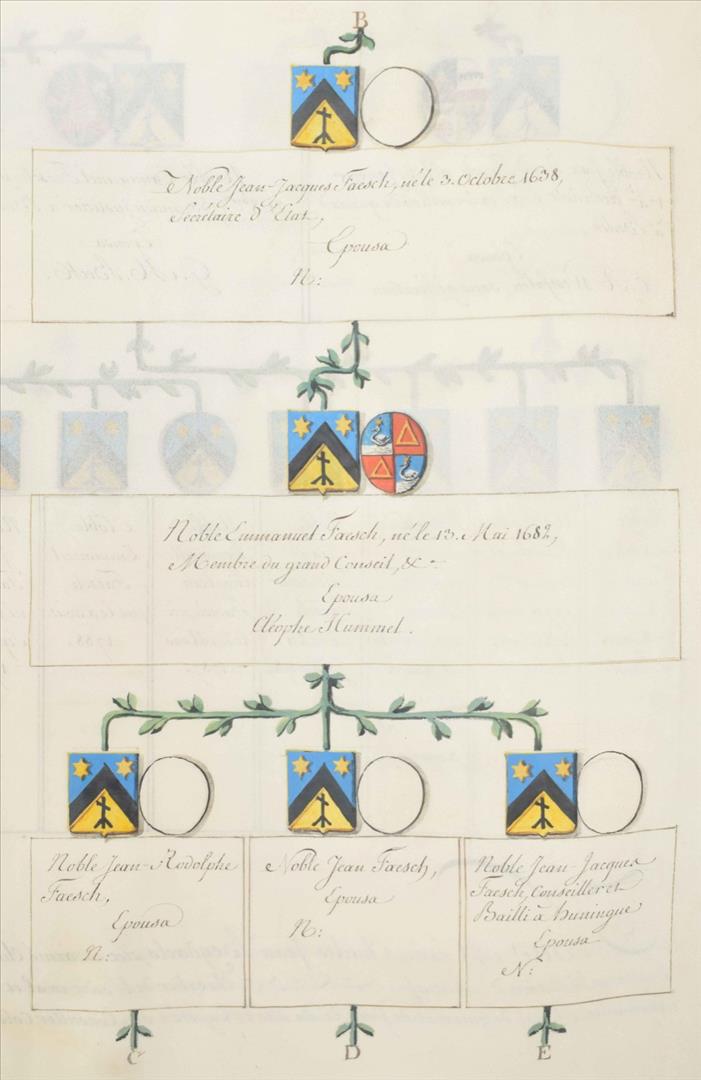 B
Noble Jean-Jacques Faesch, né le 3. Octobre 1638,
Secrétaire d'Etat,
Epousa
N:
Noble Emmanuel Faesch, né le 13. Mai 1682,
Membre du grand Conseil, &c.
Epousa
Cléophe Hummel.
Noble Jean-Rodolphe
Faesch,
Epousa
N:
Noble Jean Faesch,
Epousa
N:
Noble Jean-Jacques
Faesch, Conseiller et
Bailli à huningue
Epousa
N:
C
D
E